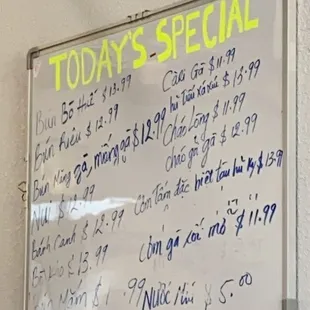 TODAY'S SPECIAL
Bún Bò Huế $13.99
Bún Riêu $12.99
Bún Măng gà, măng gà $12.99
Nui $12.99
Bánh Canh $12.99
Bò Kho $13.99
Mắm $1 .99
Cari Gà $11.99
$13.99
Cháo Lòng $11.99
cháo gỏi gà $12.99
Cơm Tấm đặc biệt tàu hủ ky $13.99
Cơm gà xối mỡ $11.99
Nước $5.00